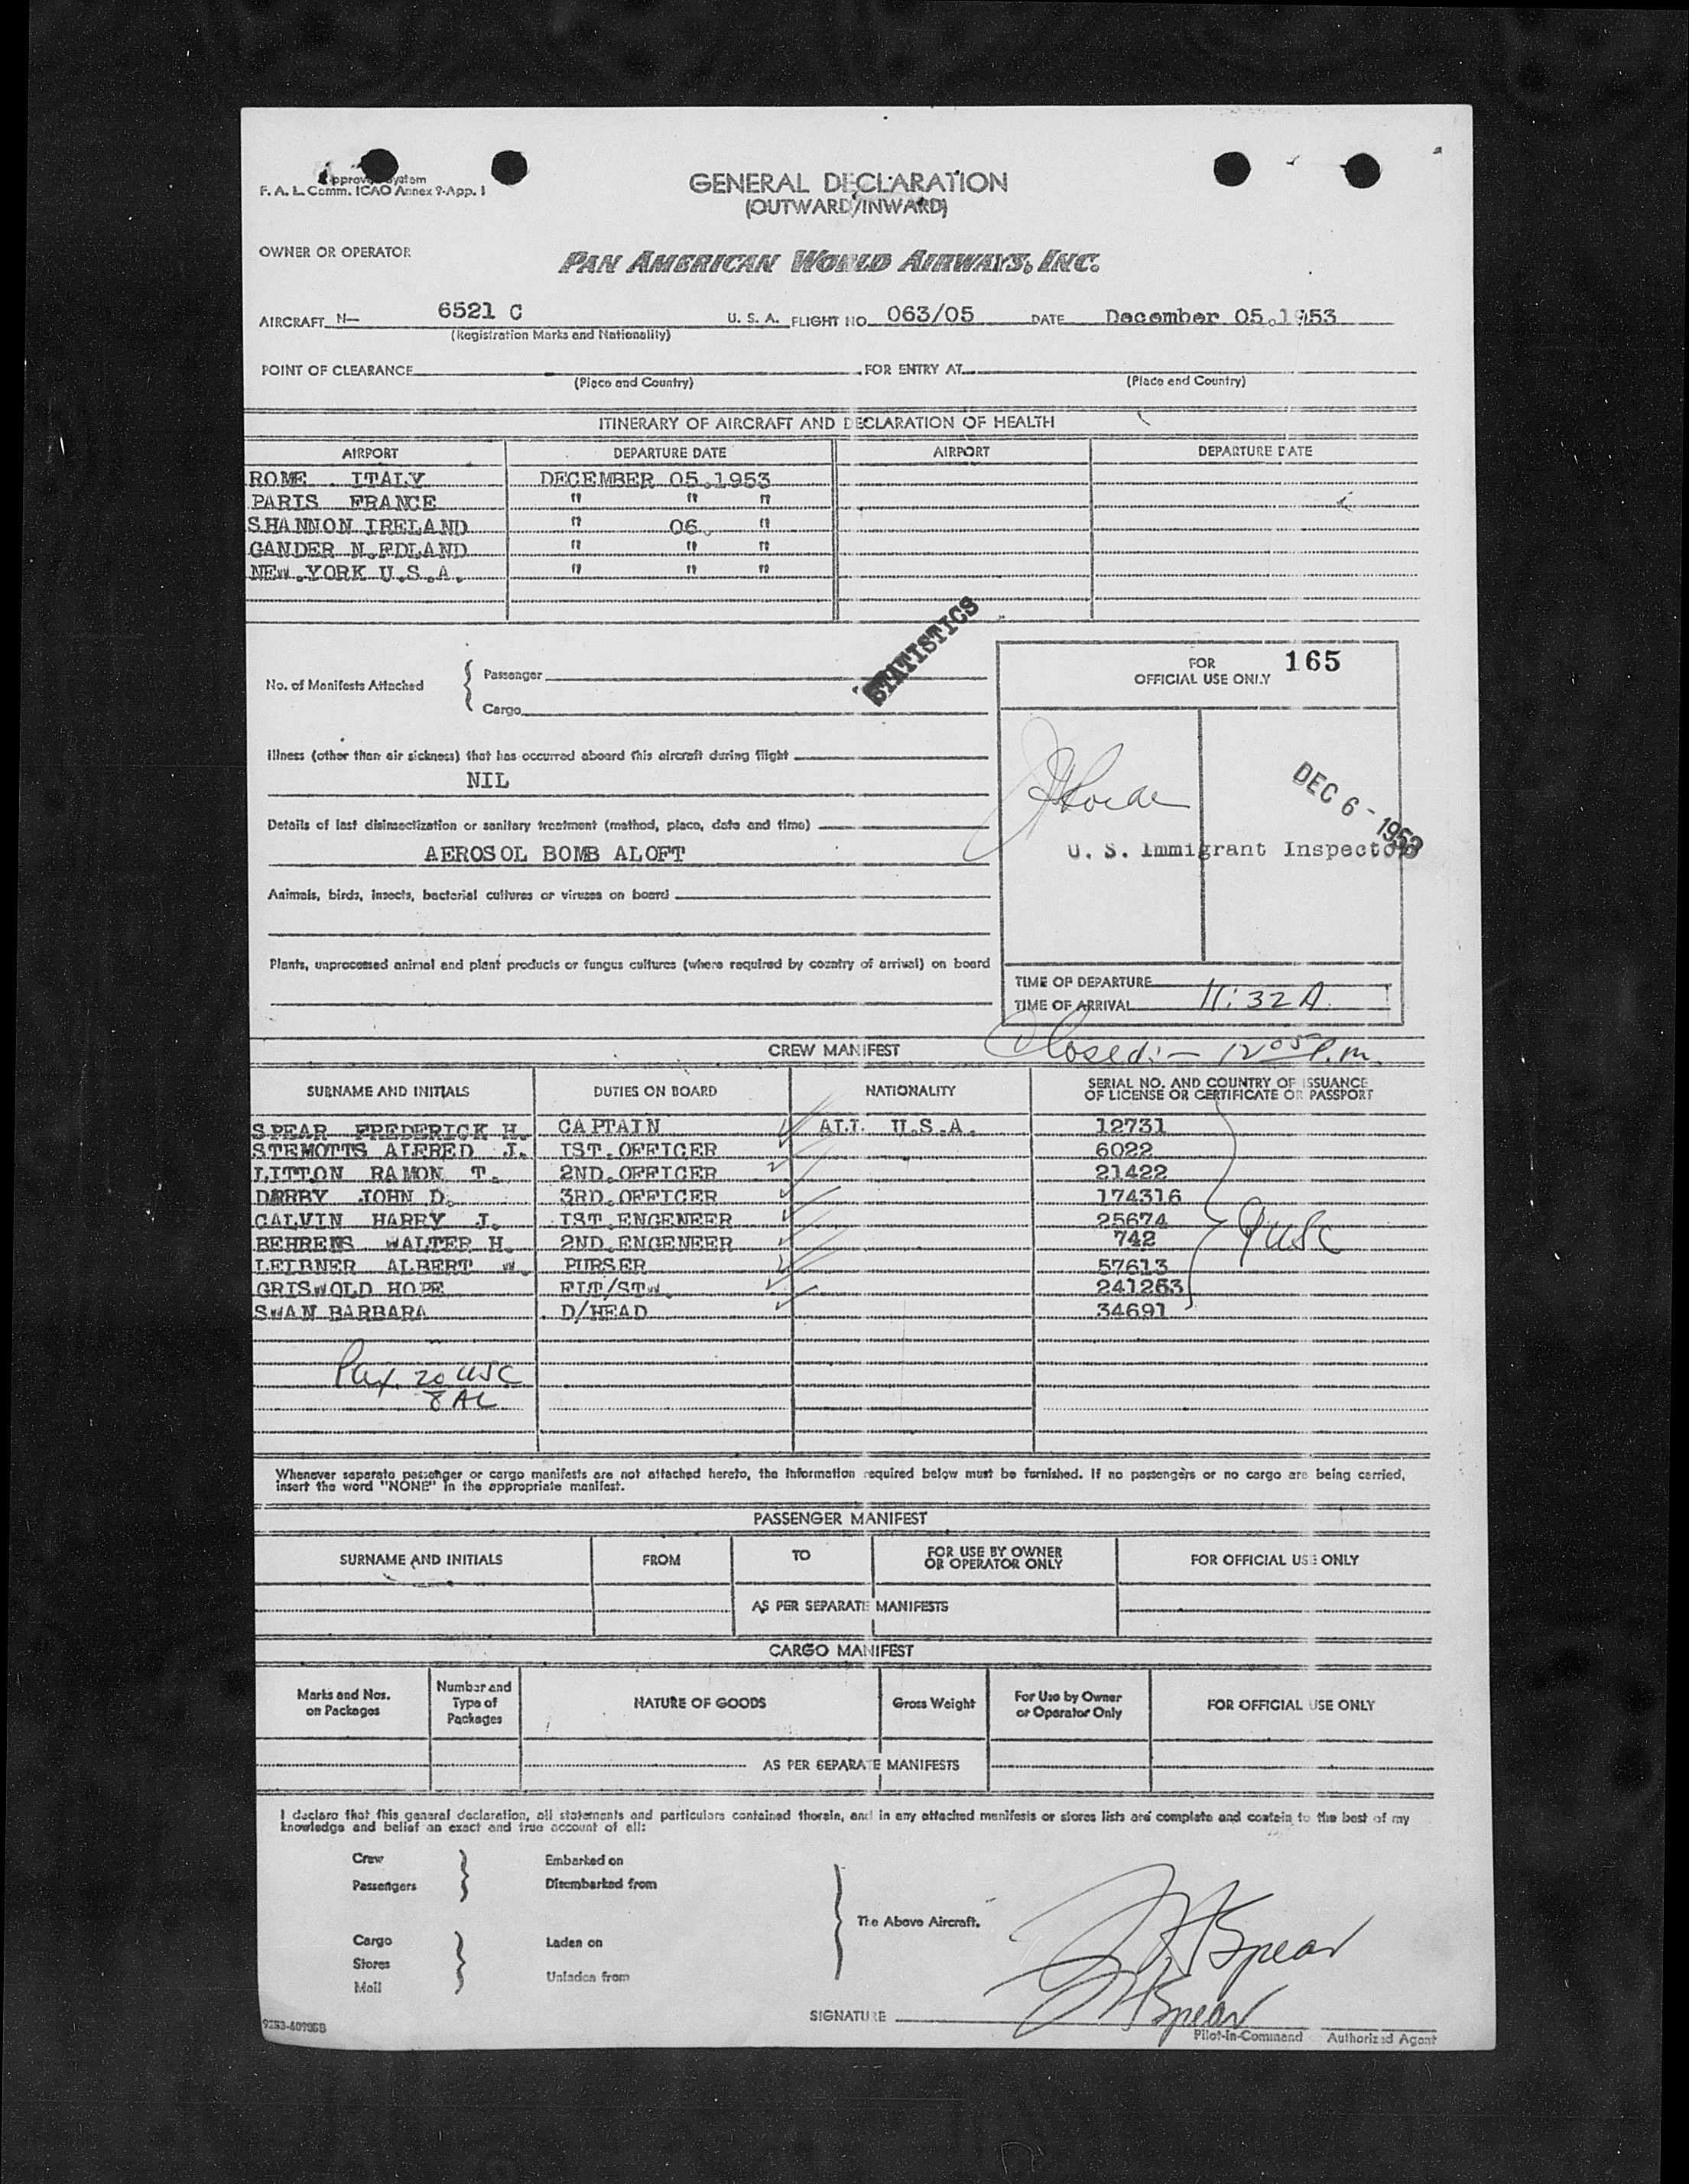 Approved System
F. A. L. Comm. ICAO Annex 9-App. 1
GENERAL DECLARATION
(OUTWARD/INWARD)
OWNER OR OPERATOR
PAN AMERICAN WORLD AIRWAYS, INC.
AIRCRAFT N— 6521 C U. S. A. FLIGHT NO. 063/05 DATE December 05.1953
(Registration Marks and Nationality)
POINT OF CLEARANCE FOR ENTRY AT
(Place and Country) (Place and Country)
ITINERARY OF AIRCRAFT AND DECLARATION OF HEALTH
AIRPORT DEPARTURE DATE AIRPORT DEPARTURE DATE
ROME ITALY DECEMBER 05.1953
PARIS FRANCE " " "
SHANNON IRELAND " 06. "
GANDER N.FDLAND " " "
NEW.YORK U.S.A. " " "
STATISTICS
FOR 165
OFFICIAL USE ONLY
No. of Manifests Attached { Passenger
Cargo
Illness (other than air sickness) that has occurred aboard this aircraft during flight
NIL
DEC 6 - 1953
Details of last disinsectization or sanitary treatment (method, place, date and time)
AEROSOL BOMB ALOFT
U. S. Immigrant Inspector
Animals, birds, insects, bacterial cultures or viruses on board
Plants, unprocessed animal and plant products or fungus cultures (where required by country of arrival) on board
TIME OF DEPARTURE
TIME OF ARRIVAL 11:32 A.
Closed:— 12 05 P.m.
CREW MANIFEST
SURNAME AND INITIALS DUTIES ON BOARD NATIONALITY SERIAL NO. AND COUNTRY OF ISSUANCE OF LICENSE OR CERTIFICATE OR PASSPORT
SPEAR FREDERICK H. CAPTAIN ALL U.S.A. 12731
STEMOTTS ALFRED J. IST.OFFICER 6022
LITTON RAMON T. 2ND.OFFICER 21422
DARBY JOHN D. 3RD.OFFICER 174316
CALVIN HARRY J. IST.ENGENEER 25674
BEHRENS WALTER H. 2ND.ENGENEER 742
LEIBNER ALBERT W. PURSER 57613
GRISWOLD HOPE FLT/STW. 241263
SWAN BARBARA D/HEAD 34691
9 USC
Pax. 20 USC
8 AL
Whenever separate passenger or cargo manifests are not attached hereto, the information required below must be furnished. If no passengers or no cargo are being carried,
insert the word "NONE" in the appropriate manifest.
PASSENGER MANIFEST
SURNAME AND INITIALS FROM TO FOR USE BY OWNER OR OPERATOR ONLY FOR OFFICIAL USE ONLY
AS PER SEPARATE MANIFESTS
CARGO MANIFEST
Marks and Nos. on Packages Number and Type of Packages NATURE OF GOODS Gross Weight For Use by Owner or Operator Only FOR OFFICIAL USE ONLY
AS PER SEPARATE MANIFESTS
I declare that this general declaration, all statements and particulars contained therein, and in any attached manifests or stores lists are complete and contain to the best of my
knowledge and belief an exact and true account of all:
Crew Embarked on
Passengers Disembarked from
The Above Aircraft.
Cargo Laden on
Stores
Mail Unladen from
FHSpear
FHSpear
SIGNATURE
Pilot-in-Command Authorized Agent